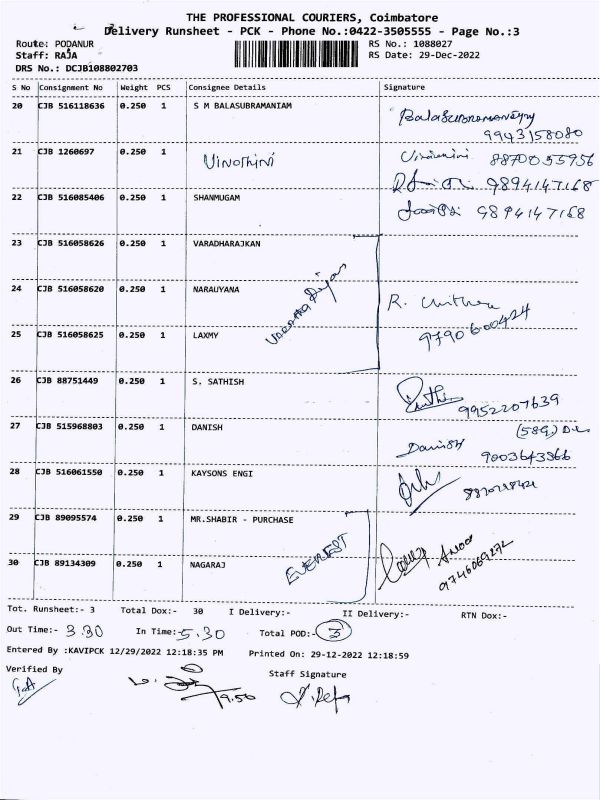 THE PROFESSIONAL COURIERS, Coimbatore
Delivery Runsheet - PCK - Phone No.:0422-3505555 - Page No.:3
Route: PODANUR
Staff: RAJA
DRS No.: DCJB108802703
RS No.: 1088027
RS Date: 29-Dec-2022
S No Consignment No Weight PCS Consignee Details Signature
20 CJB 516118636 0.250 1 S M BALASUBRAMANIAM
9943158080
21 CJB 1260697 0.250 1 Vinothini 8870055956
9894147168
22 CJB 516085406 0.250 1 SHANMUGAM
9894147168
23 CJB 516058626 0.250 1 VARADHARAJKAN
24 CJB 516058620 0.250 1 NARAUYANA
R. Chithra
9790600424
25 CJB 516058625 0.250 1 LAXMY
26 CJB 88751449 0.250 1 S. SATHISH
9952207639
27 CJB 515968803 0.250 1 DANISH
Danish 9003643366
28 CJB 516061550 0.250 1 KAYSONS ENGI
29 CJB 89095574 0.250 1 MR.SHABIR - PURCHASE
EVEREST
30 CJB 89134309 0.250 1 NAGARAJ
Tot. Runsheet:- 3 Total Dox:- 30 I Delivery:- II Delivery:- RTN Dox:-
Out Time:- 3.30 In Time:- 5.30 Total POD:- 3
Entered By :KAVIPCK 12/29/2022 12:18:35 PM Printed On: 29-12-2022 12:18:59
Verified By Staff Signature
9.50